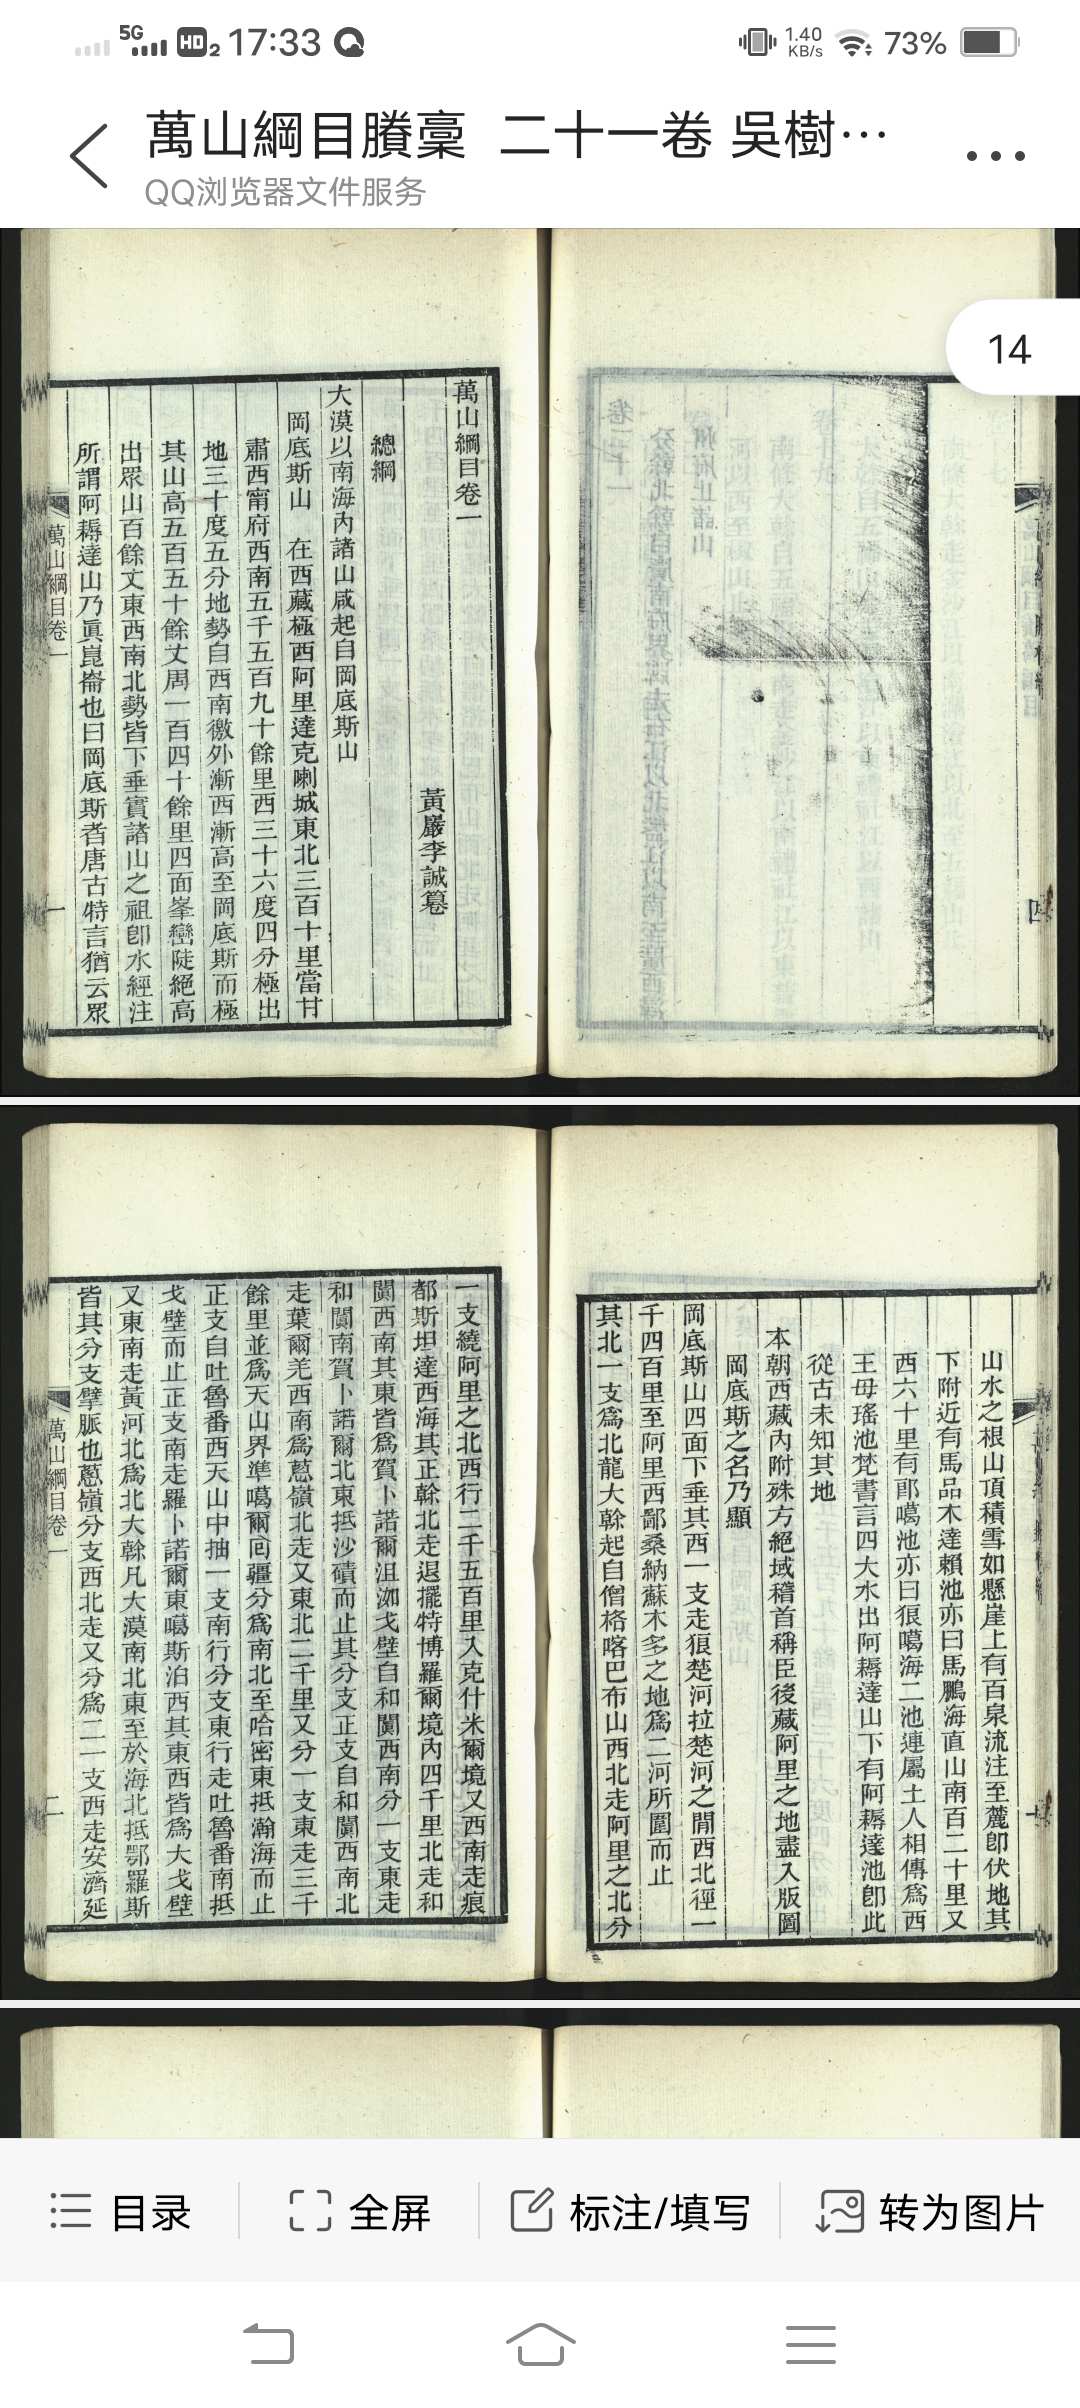 5G HD2 17:33 1.40 KB/s 73%
萬山綱目賸稾 二十一卷 吳樹…
QQ浏览器文件服务
14
四
萬山綱目卷一
黃巖李誠纂
總綱
大漠以南海內諸山咸起自岡底斯山
岡底斯山 在西藏極西阿里達克喇城東北三百十里當甘
肅西甯府西南五千五百九十餘里西三十六度四分極出
地三十度五分地勢自西南徼外漸西漸高至岡底斯而極
其山高五百五十餘丈周一百四十餘里四面峯巒陡絕高
出眾山百餘丈東西南北勢皆下垂實諸山之祖卽水經注
所謂阿耨達山乃眞崑崙也曰岡底斯者唐古特言猶云眾
萬山綱目卷一
一
山水之根山頂積雪如懸崖上有百泉流注至麓卽伏地其
下附近有馬品木達賴池亦曰馬鵬海直山南百二十里又
西六十里有郎噶池亦曰狠噶海二池連屬土人相傳爲西
王母瑤池梵書言四大水出阿耨達山下有阿耨達池卽此
從古未知其地
本朝西藏內附殊方絕域稽首稱臣後藏阿里之地盡入版圖
岡底斯之名乃顯
岡底斯山四面下垂其西一支走狠楚河拉楚河之閒西北徑一
千四百里至阿里西鄙桑納蘇木多之地爲二河所圍而止
其北一支爲北龍大榦起自僧格喀巴布山西北走阿里之北分
一支繞阿里之北西行二千五百里入克什米爾境又西南走痕
都斯坦達西海其正榦北走退擺特博羅爾境內四千里北走和
闐西南其東皆爲賀卜諾爾沮洳戈壁自和闐西南分一支東走
和闐南賀卜諾爾北東抵沙磧而止其分支正支自和闐西南北
走葉爾羌西南爲蔥嶺北走又東北二千里又分一支東走三千
餘里並爲天山界準噶爾囘疆分爲南北至哈密東抵瀚海而止
正支自吐魯番西天山中抽一支南行分支東行走吐魯番南抵
戈壁而止正支南走羅卜諾爾東噶斯泊西其東西皆爲大戈壁
又東南走黃河北爲北大榦凡大漠南北東至於海北抵鄂羅斯
皆其分支擘脈也蔥嶺分支西北走又分爲二一支西走安濟延
萬山綱目卷一
二
目录
全屏
标注/填写
转为图片